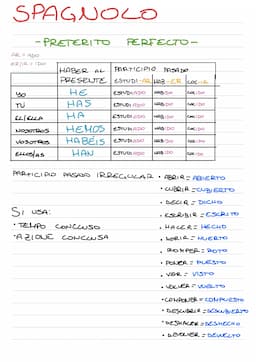 SPAGNOLO
- PRETERITO PERFECTO -
AR = ADO
ER/IR = IDO
HABER AL PRESENTE PARTICIPIO PASADO
ESTUDI-AR HAB-ER COC-IR
YO HE ESTUDIADO HABIDO COCIDO
TÚ HAS ESTUDIADO HABIDO COCIDO
EL/ELLA HA ESTUDIADO HABIDO COCIDO
NOSOTROS HEMOS ESTUDIADO HABIDO COCIDO
VOSOTROS HABÉIS ESTUDIADO HABIDO COCIDO
ELLOS/AS HAN ESTUDIADO HABIDO COCIDO
PARTICIPIO PASADO IRREGULAR
• ABRIR = ABIERTO
• CUBRIR = CUBIERTO
• DECIR = DICHO
• ESCRIBIR = ESCRITO
• HACER = HECHO
• MORIR = MUERTO
• ROMPER = ROTO
• PONER = PUESTO
• VER = VISTO
• VOLVER = VUELTO
• COMPONER = COMPUESTO
• DESCUBRIR = DESCUBIERTO
• DESHACER = DESHECHO
• DEVOLVER = DEVUELTO
SI USA:
• TEMPO CONCLUSO
• AZIONE CONCLUSA